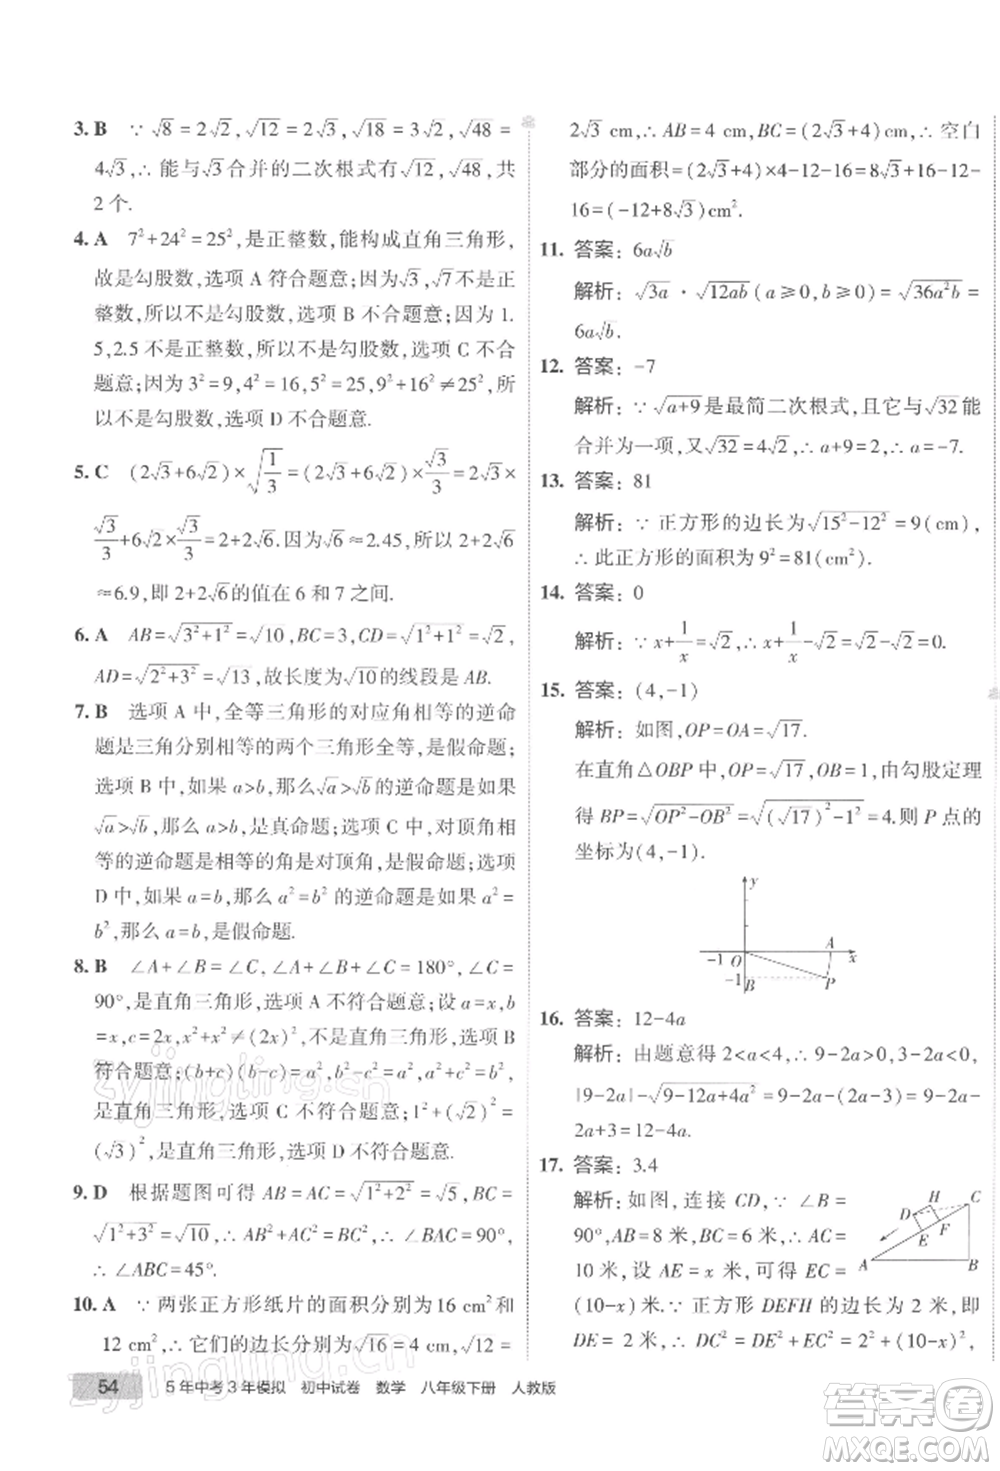 3. B ∵ √8 = 2√2, √12 = 2√3, √18 = 3√2, √48 =
4√3, ∴ 能与√3合并的二次根式有√12, √48, 共
2 个.
4. A 7²+24²=25², 是正整数, 能构成直角三角形,
故是勾股数, 选项 A 符合题意; 因为√3, √7不是正
整数, 所以不是勾股数, 选项 B 不合题意; 因为 1.
5, 2.5 不是正整数, 所以不是勾股数, 选项 C 不合
题意; 因为 3²=9, 4²=16, 5²=25, 9²+16²≠25², 所
以不是勾股数, 选项 D 不合题意.
5. C (2√3+6√2)×√(1/3)=(2√3+6√2)×√3/3=2√3×
√3/3+6√2×√3/3=2+2√6, ∵ √6≈2.45, ∴ 2+2√6
≈6.9, 即 2+2√6的值在 6 和 7 之间.
6. A AB=√(3²+1²)=√10, BC=3, CD=√(1²+1²)=√2,
AD=√(2²+3²)=√13, 故长度为√10的线段是 AB.
7. B 选项 A 中, 全等三角形的对应角相等的逆命
题是三角分别相等的两个三角形全等, 是假命题;
选项 B 中, 如果 a>b, 那么√a>√b的逆命题是如果
√a>√b, 那么 a>b, 是真命题; 选项 C 中, 对顶角相
等的逆命题是相等的角是对顶角, 是假命题; 选项
D 中, 如果 a=b, 那么 a²=b²的逆命题是如果 a²=
b², 那么 a=b, 是假命题.
8. B ∠A+∠B=∠C, 得2∠C=180°, 则∠C=
90°, 是直角三角形, 选项 A 不符合题意; 设 a=x, b
=x, c=2x, x²+x²≠(2x)², 不是直角三角形, 选项 B
符合题意; a²=(c+b)(c-b)=c²-b², 即 a²+b²=c²,
是直角三角形, 选项 C 不符合题意; 1²+(√2)²=
(√3)², 是直角三角形, 选项 D 不符合题意.
9. D 根据题图可得 AB=AC=√(1²+2²)=√5, BC=
√(1²+3²)=√10, ∴ AB²+AC²=BC², ∴ ∠BAC=90°,
∴ ∠ABC=45°.
10. A ∵ 两张正方形纸片的面积分别为16 cm²和
12 cm², ∴ 它们的边长分别为√16=4 cm, √12=
2√3 cm, ∴ AB=4 cm, BC=(2√3+4) cm, ∴ 空白
部分的面积=(2√3+4)×4-12-16=8√3+16-12-
16=(-12+8√3)cm².
11. 答案: 6a√b
解析: √3a·√12ab(a≥0, b≥0)=√36a²b=
6a√b.
12. 答案: -7
解析: ∵ √(a+9)是最简二次根式, 且它与√32能
合并为一项, 又√32=4√2, ∴ a+9=2, ∴ a=-7.
13. 答案: 81
解析: ∵ 正方形的边长为√(15²-12²)=9(cm),
∴ 此正方形的面积为 9²=81(cm²).
14. 答案: 0
解析: ∵ x+1/x=√2, ∴ x+1/x-√2=√2-√2=0.
15. 答案: (4, -1)
解析: 如图, OP=OA=√17.
在直角△OBP 中, OP=√17, OB=1, 由勾股定理
得 BP=√(OP²-OB²)=√((√17)²-1²)=4.则 P 点的
坐标为(4, -1).
y
-1 O A x
-1 B P
16. 答案: 12-4a
解析: 由题意得 2<a<4, ∴ 9-2a>0, 2a-3>0, ∴
|9-2a|-√(9-12a+4a²)=9-2a-(2a-3)=9-2a-
2a+3=12-4a.
17. 答案: 3.4
解析: 如图, 连接 CD, ∵ ∠B=
90°, AB=8 米, BC=6 米, ∴ AC
=10 米, 设 AE=x 米, 可得 EC=
(10-x) 米, ∵ 正方形 DEFH 的边长为 2 米, 即
DE=2 米, ∴ DC²=DE²+EC²=2²+(10-x)²,
H C
D
E F
A B
54 5年中考3年模拟 初中试卷 数学 八年级下册 人教版
zyjingling.cn
zyjingling.cn
答案圈
MXQE.COM